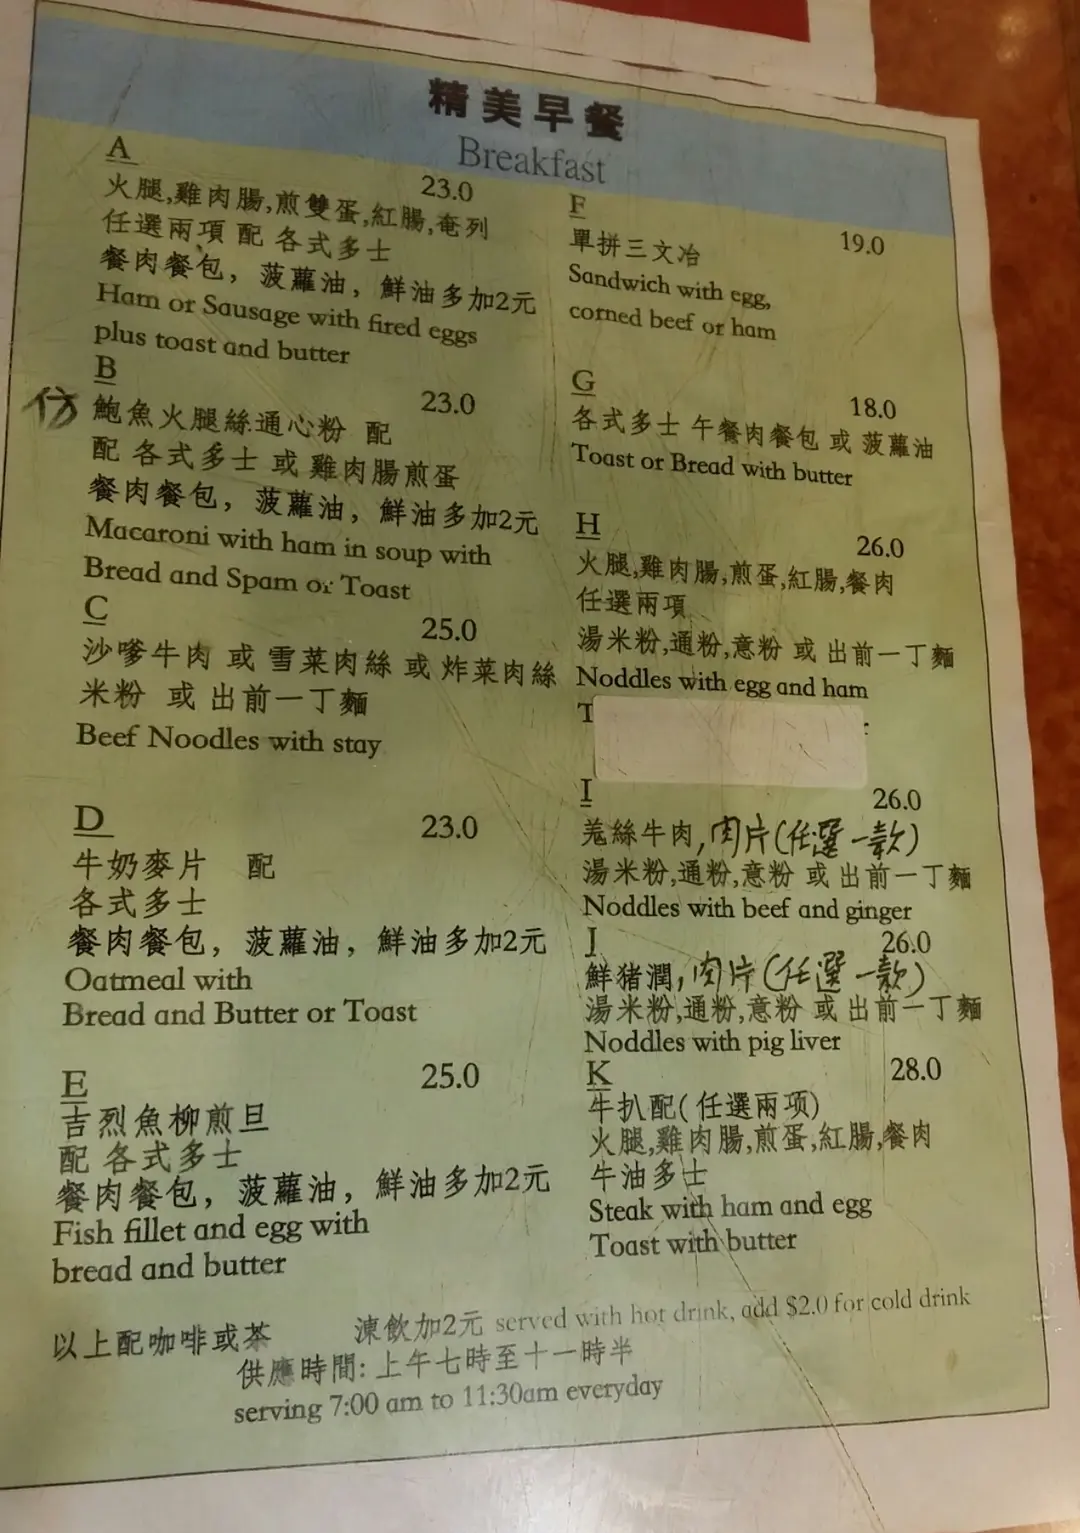 精美早餐
Breakfast
A
23.0
火腿,雞肉腸,煎雙蛋,紅腸,奄列
任選兩項 配 各式多士
餐肉餐包，菠蘿油，鮮油多加2元
Ham or Sausage with fired eggs
plus toast and butter
B
23.0
仿 鮑魚火腿絲通心粉 配
配 各式多士 或 雞肉腸煎蛋
餐肉餐包，菠蘿油，鮮油多加2元
Macaroni with ham in soup with
Bread and Spam or Toast
C
25.0
沙嗲牛肉 或 雪菜肉絲 或 炸菜肉絲
米粉 或 出前一丁麵
Beef Noodles with stay
D
23.0
牛奶麥片 配
各式多士
餐肉餐包，菠蘿油，鮮油多加2元
Oatmeal with
Bread and Butter or Toast
E
25.0
吉烈魚柳煎旦
配 各式多士
餐肉餐包，菠蘿油，鮮油多加2元
Fish fillet and egg with
bread and butter
F
19.0
單拼三文冶
Sandwich with egg,
corned beef or ham
G
18.0
各式多士 午餐肉餐包 或 菠蘿油
Toast or Bread with butter
H
26.0
火腿,雞肉腸,煎蛋,紅腸,餐肉
任選兩項
湯米粉,通粉,意粉 或 出前一丁麵
Noddles with egg and ham
T
I
26.0
羗絲牛肉,肉片(任選一款)
湯米粉,通粉,意粉 或 出前一丁麵
Noddles with beef and ginger
J
26.0
鮮猪潤,肉片(任選一款)
湯米粉,通粉,意粉 或 出前一丁麵
Noddles with pig liver
K
28.0
牛扒配(任選兩项)
火腿,雞肉腸,煎蛋,紅腸,餐肉
牛油多士
Steak with ham and egg
Toast with butter
以上配咖啡或茶 涷飲加2元 served with hot drink, add $2.0 for cold drink
供應時間: 上午七時至十一時半
serving 7:00 am to 11:30am everyday